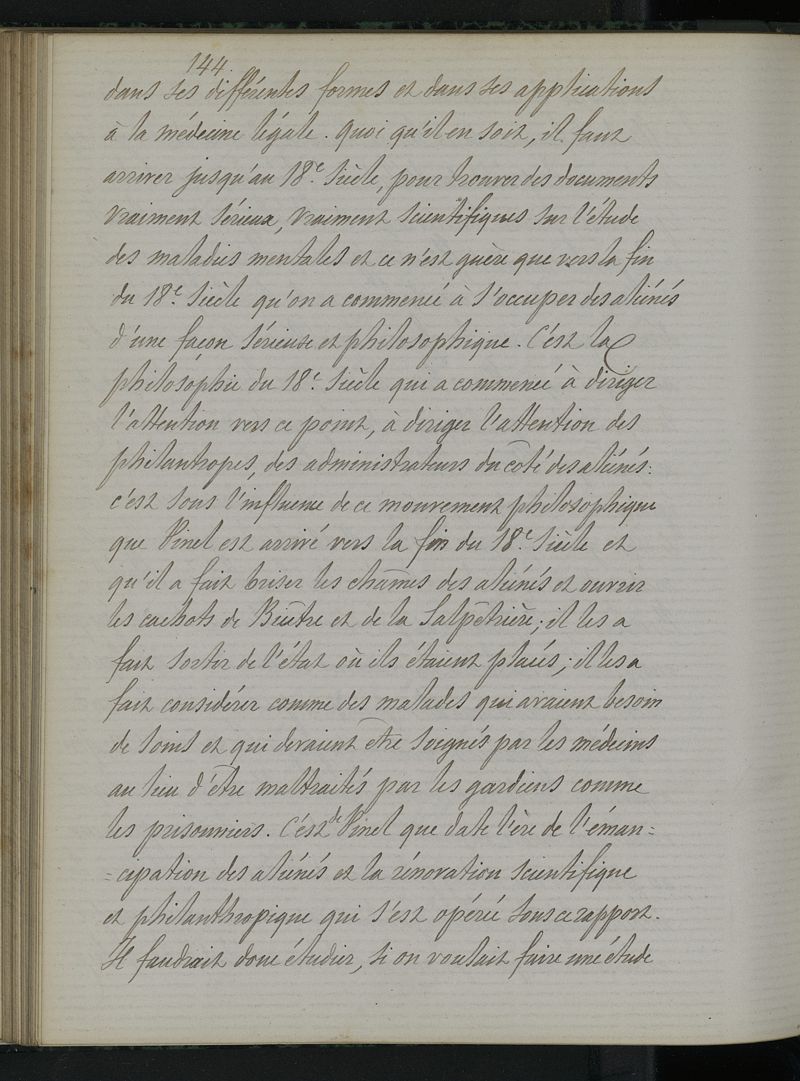 144
dans ses différentes formes et dans ses applications
à la médecine légale. Quoi qu'il en soit, il faut
arriver jusqu'au 18e. Siècle, pour trouver des documents
vraiment sérieux, vraiment scientifiques sur l'étude
des maladies mentales et ce n'est guère que vers la fin
du 18e. Siècle qu'on a commencé à s'occuper des aliénés
d'une façon sérieuse et philosophique. C'est la
philosophie du 18e. Siècle qui a commencé à diriger
l'attention vers ce point, à diriger l'attention des
philantropes, des administrateurs du côté des aliénés:
c'est sous l'influence de ce mouvement philosophique
que Pinel est arrivé vers la fin du 18e. Siècle et
qu'il a fait briser les chaînes des aliénés et ouvrir
les cachots de Bicêtre et de la Salpêtrière; il les a
fait sortir de l'état où ils étaient placés; il les a
fait considérer comme des malades qui avaient besoin
de soins et qui devaient être soignés par les médecins
au lieu d'être maltraités par les gardiens comme
les prisonniers. C'est de Pinel que date l'ère de l'éman=
=cipation des aliénés et la rénovation scientifique
et philanthropique qui s'est opérée sous ce rapport.
Il faudrait donc étudier, si on voulait faire une étude